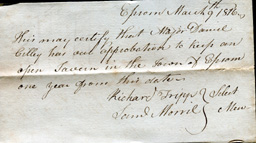 Epsom March 9th 1816
This may certify that Major Daniel
Cilley has our approbation to keep an
open Tavern in the Town of Epsom
one year from this date
Richard Tripp } Select
Josiah Morril } Men